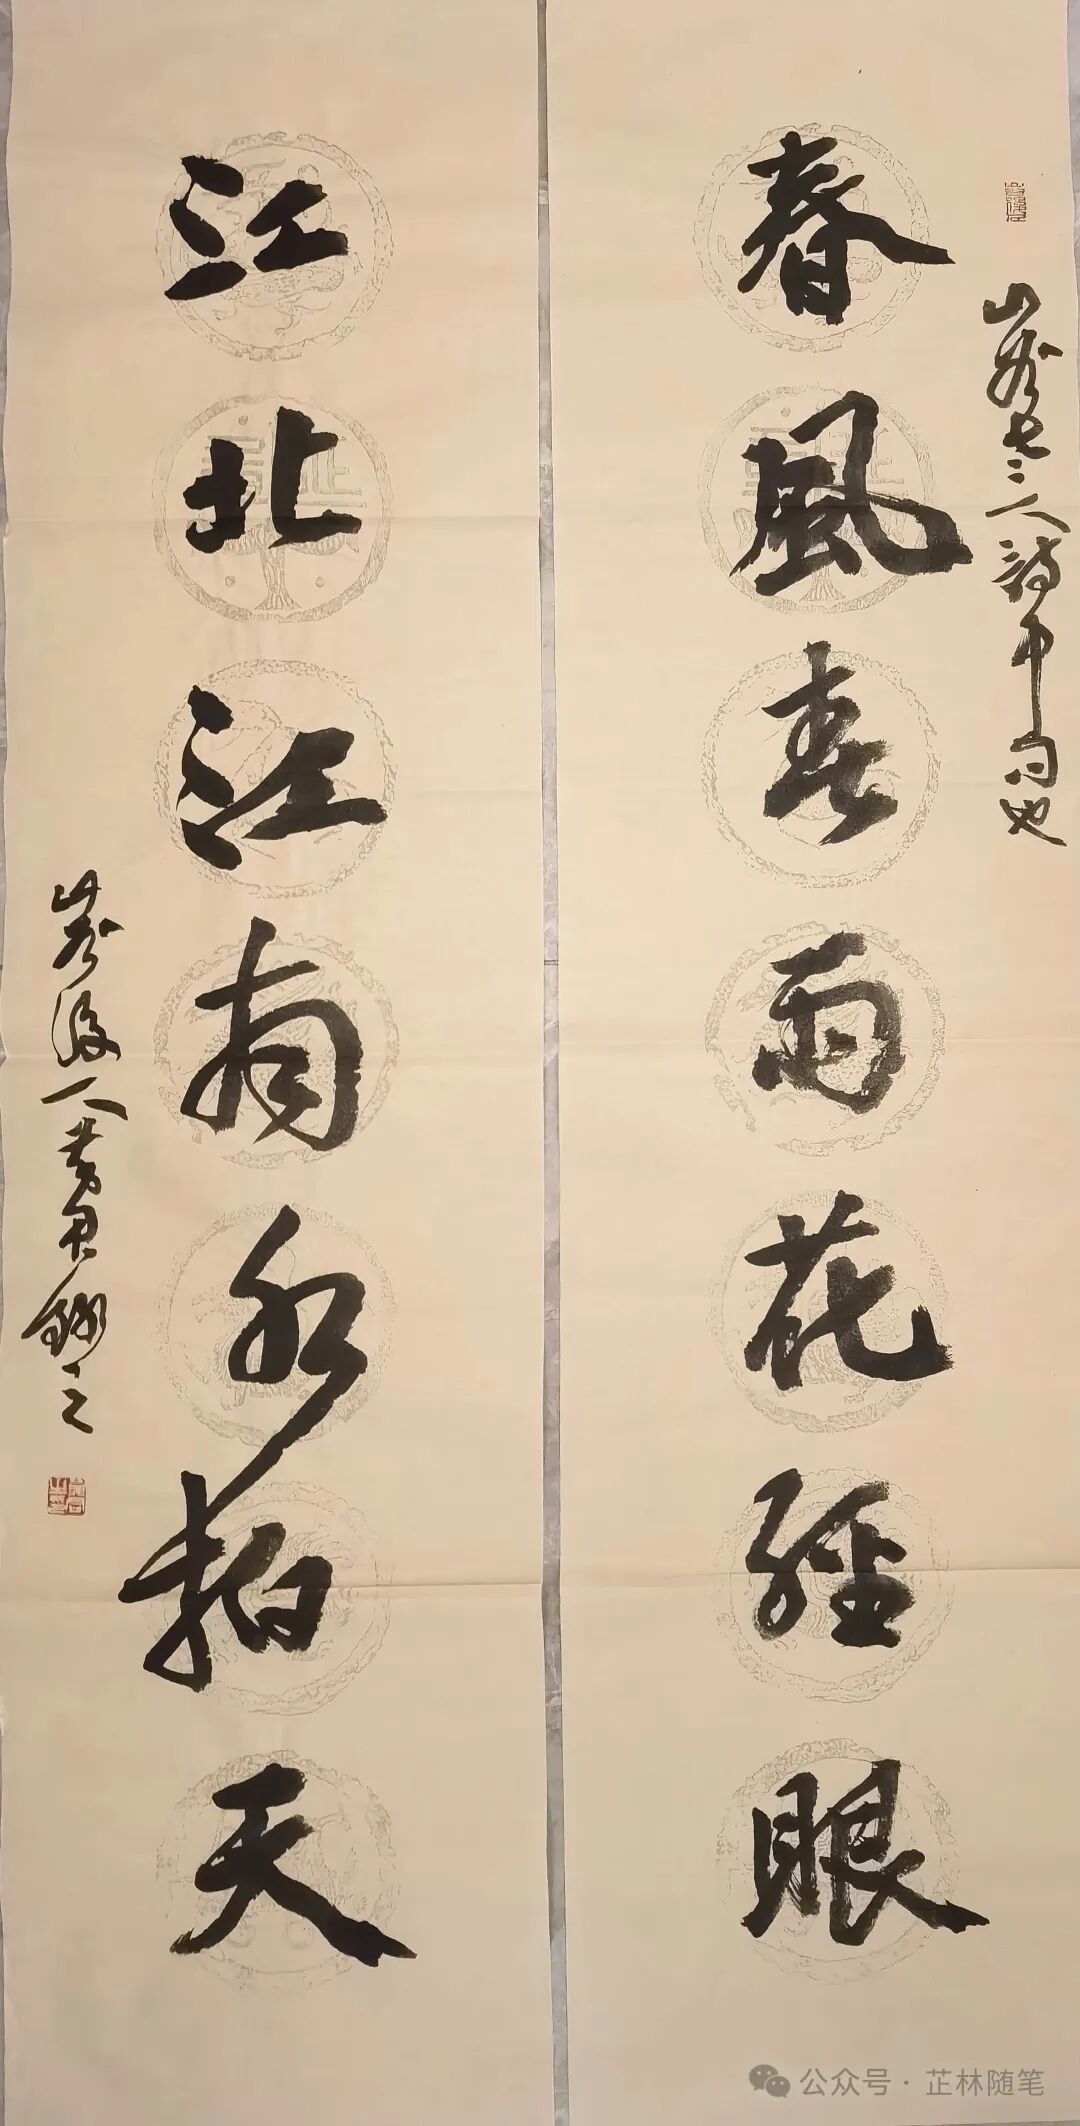 山谷老人詩中句也
春風春雨花經眼
江北江南水拍天
山谷後人黄君錄之
公众号 · 芷林随笔